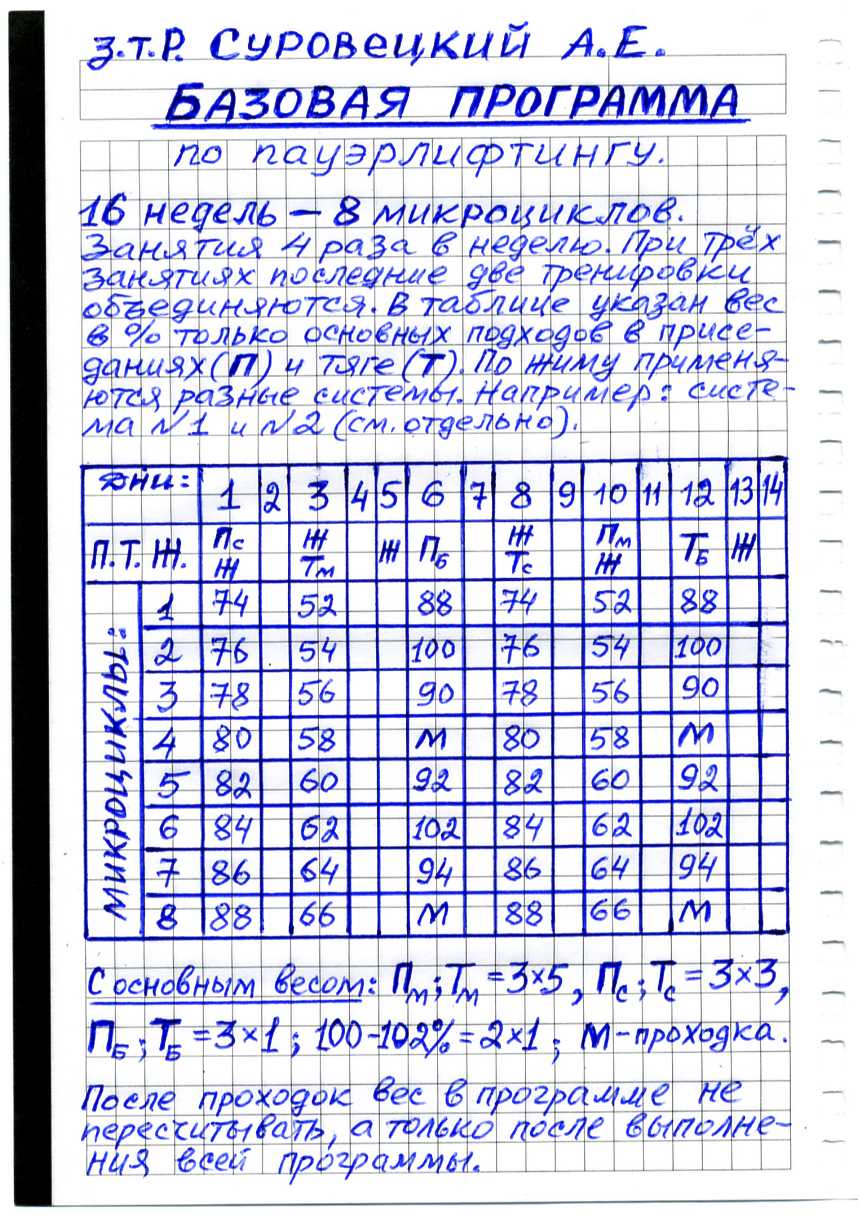 з.т.Р. Суровецкий А.Е.
БАЗОВАЯ ПРОГРАММА
по пауэрлифтингу.
16 недель – 8 микроциклов.
Занятия 4 раза в неделю. При трёх
занятиях последние две тренировки
объединяются. В таблице указан вес
в % только основных подходов в присе-
даниях (П) и тяге (Т). По жиму применя-
ются разные системы. Например: систе-
ма №1 и №2 (см. отдельно).
Дни: 1 2 3 4 5 6 7 8 9 10 11 12 13 14
П.Т.Ж. Пс Ж Ж Тм Ж Пб Ж Тс Пм Ж Тб Ж
МИКРОЦИКЛЫ:
1 74 52 88 74 52 88
2 76 54 100 76 54 100
3 78 56 90 78 56 90
4 80 58 М 80 58 М
5 82 60 92 82 60 92
6 84 62 102 84 62 102
7 86 64 94 86 64 94
8 88 66 М 88 66 М
С основным весом: Пм; Тм = 3×5, Пс; Тс = 3×3,
Пб; Тб = 3×1; 100-102% = 2×1; М-проходка.
После проходок вес в программе не
пересчитывать, а только после выполне-
ния всей программы.